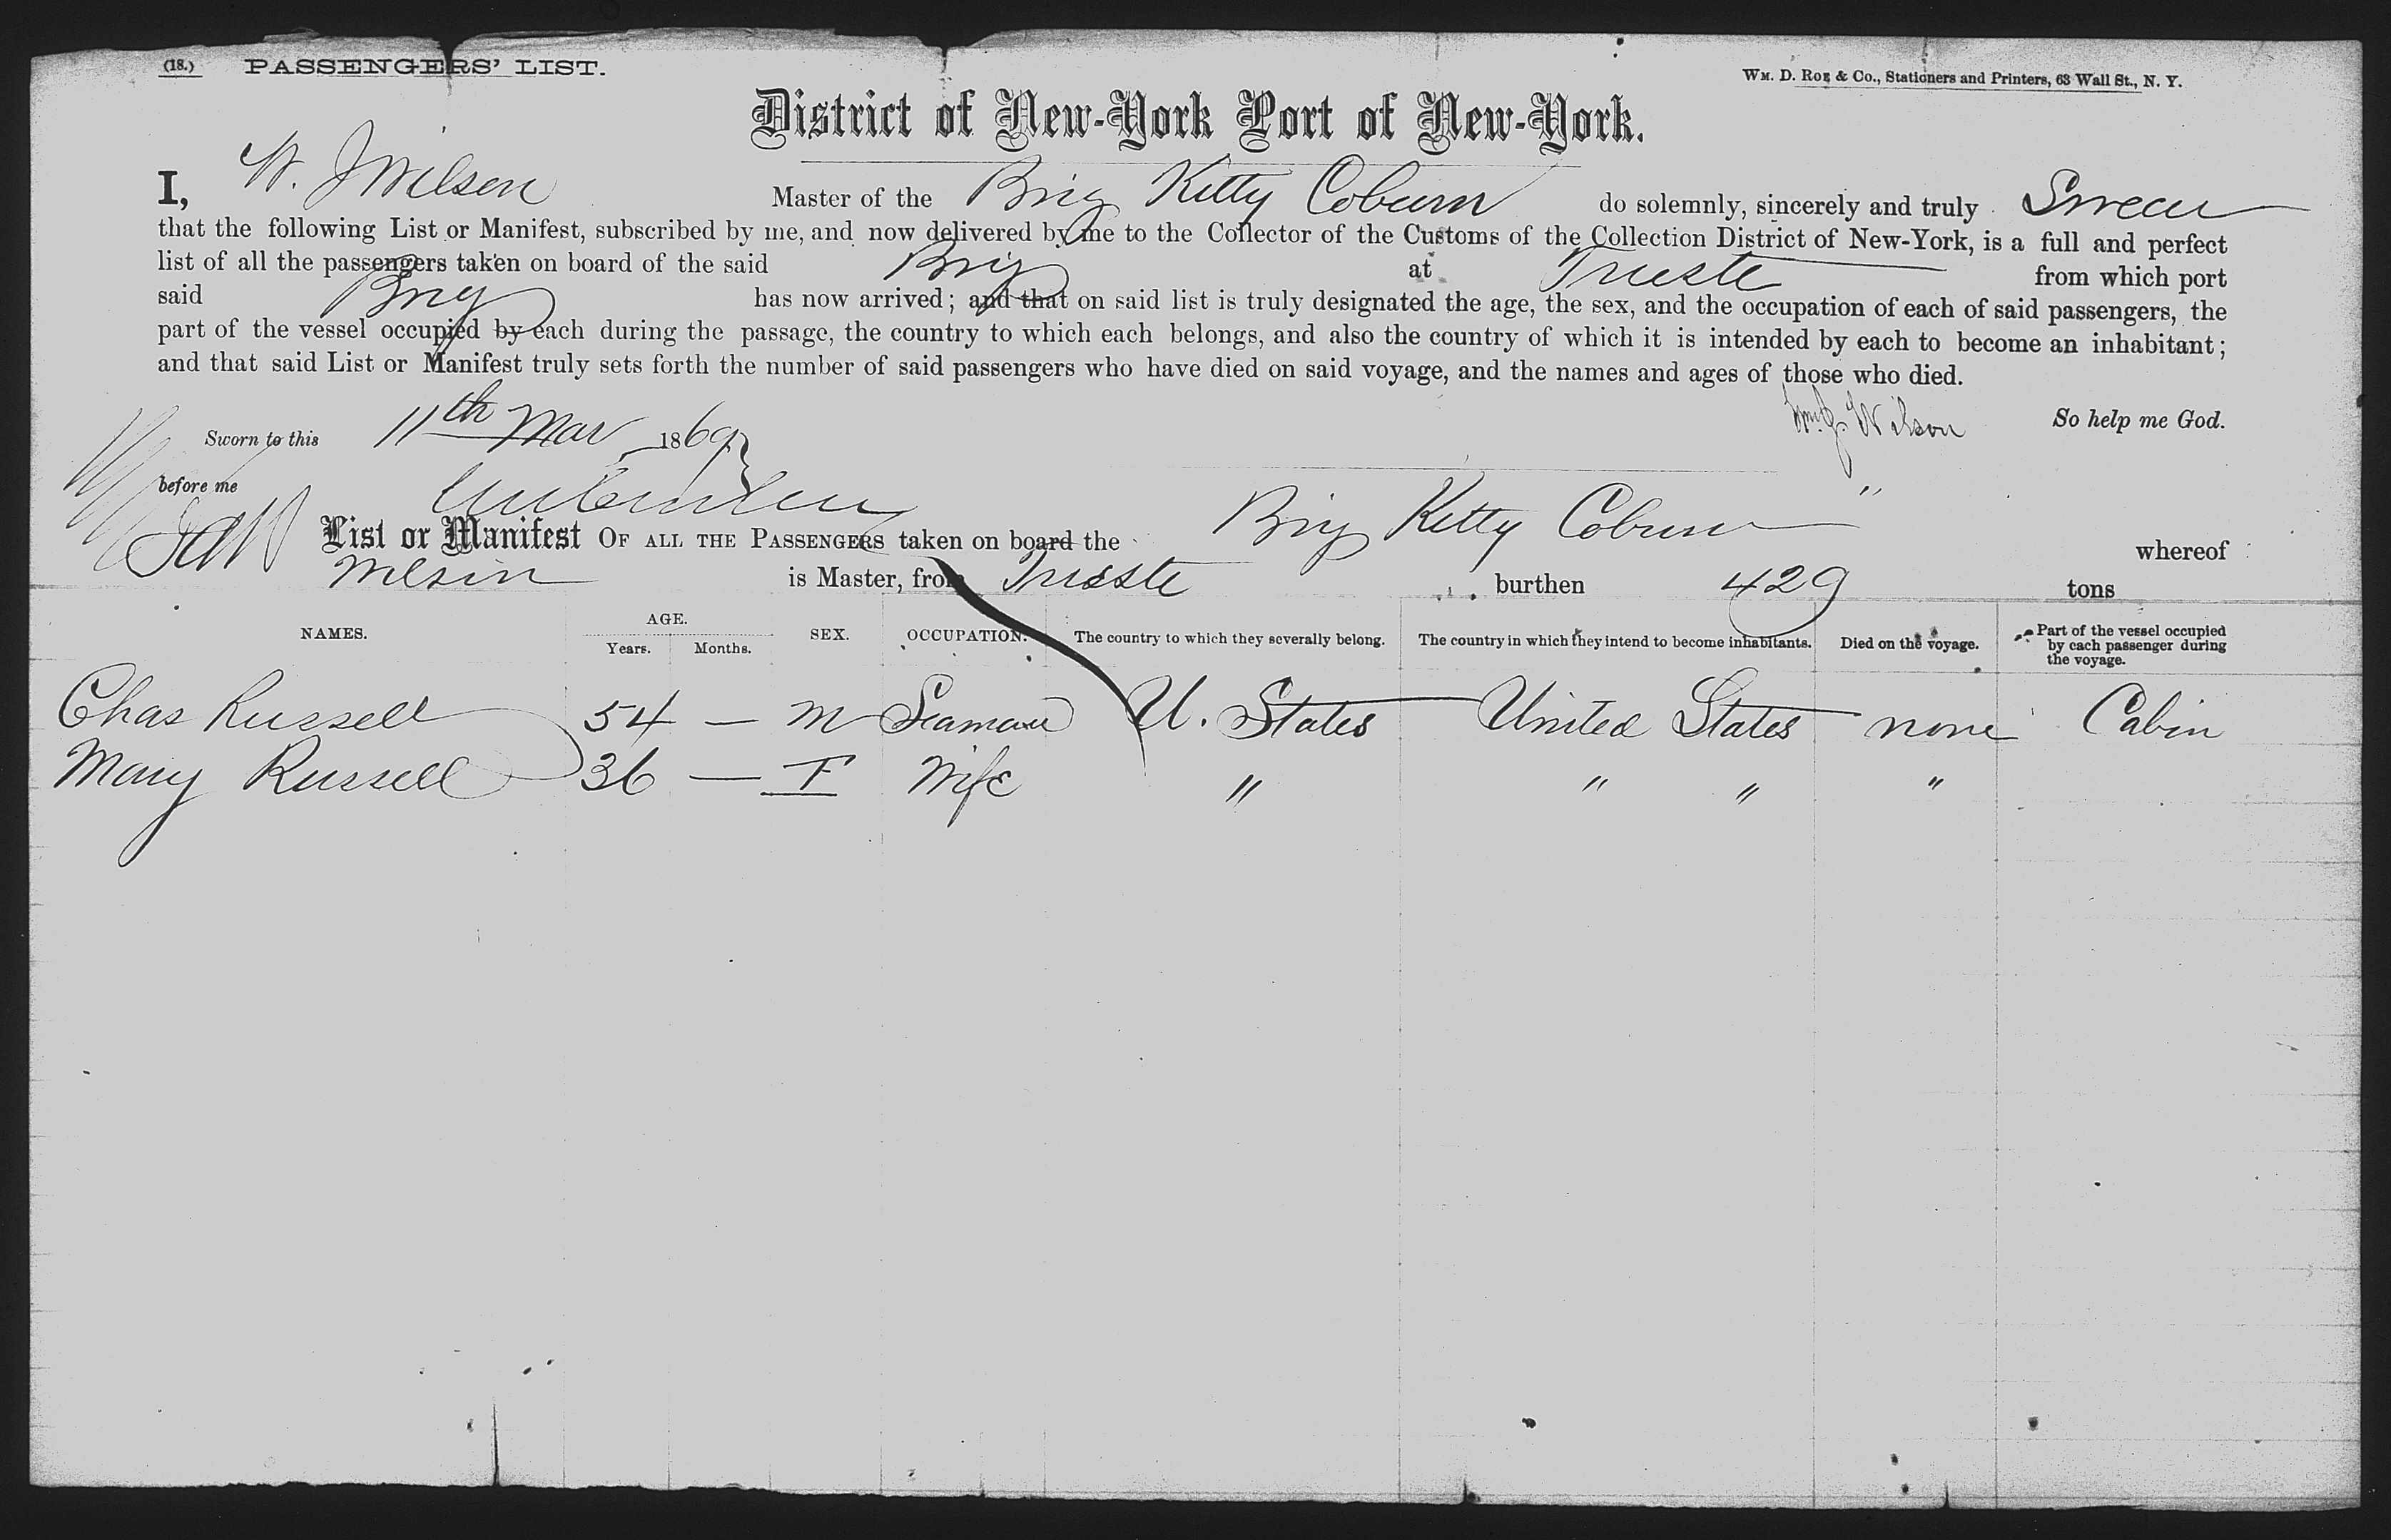 (18.) PASSENGERS' LIST.
WM. D. ROE & Co., Stationers and Printers, 63 Wall St., N. Y.
District of New-York Port of New-York.
I, W. J Wilson Master of the Brig Kitty Coburn do solemnly, sincerely and truly Swear
that the following List or Manifest, subscribed by me, and now delivered by me to the Collector of the Customs of the Collection District of New-York, is a full and perfect
list of all the passengers taken on board of the said Brig at Trieste from which port
said Brig has now arrived; and that on said list is truly designated the age, the sex, and the occupation of each of said passengers, the
part of the vessel occupied by each during the passage, the country to which each belongs, and also the country of which it is intended by each to become an inhabitant;
and that said List or Manifest truly sets forth the number of said passengers who have died on said voyage, and the names and ages of those who died.
Wm J Wilson So help me God.
Sworn to this 11th Mar 1869
before me
List or Manifest OF ALL THE PASSENGERS taken on board the Brig Kitty Coburn whereof
Wilson is Master, from Trieste burthen 429 tons
NAMES. AGE. Years. Months. SEX. OCCUPATION. The country to which they severally belong. The country in which they intend to become inhabitants. Died on the voyage. Part of the vessel occupied by each passenger during the voyage.
Chas Russell 54 — M Seaman U. States United States none Cabin
Mary Russell 36 — F Wife " " " "